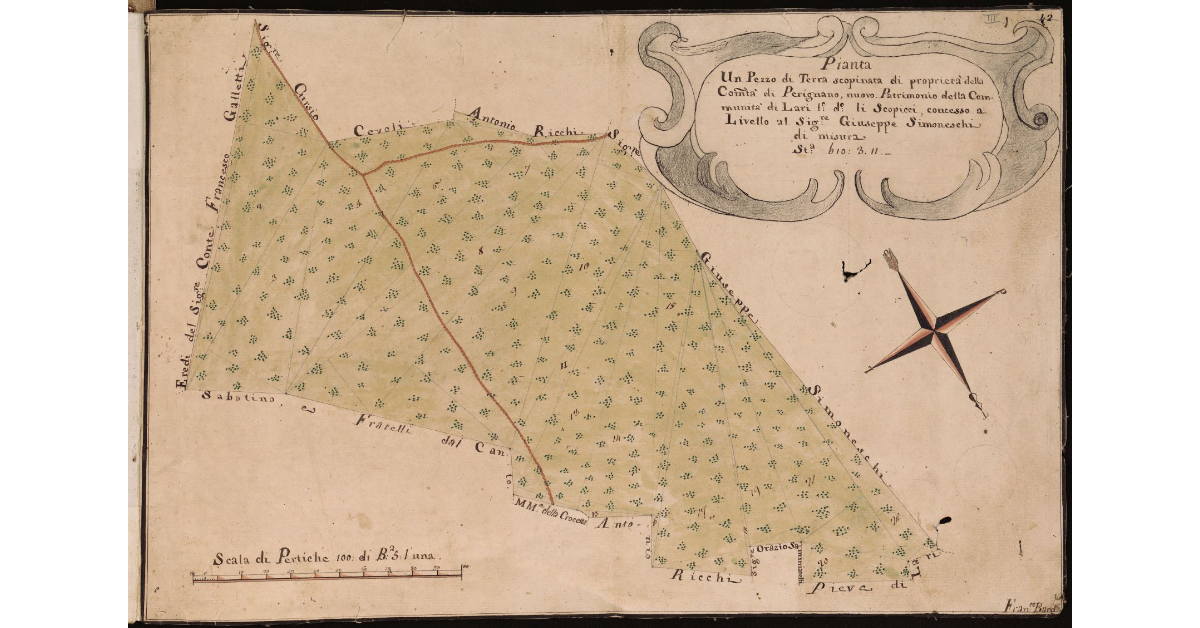 III 42
Pianta
Un Pezzo di Terra scopinata di proprietà della
Com̃tà di Perignano, nuovo Patrimonio della Com-
munità di Lari l.º d.º li Scopicci, concesso a
Livello al Sig.re Giuseppe Simoneschi
di misura
St.ª 610: 3. 11.
Sig.re Ciusto Ceroli
Antonio Ricchi
Sig.re Giuseppe Simoneschi
Eredi del Sig.re Conte Francesco Galletti
Sabatino, e Fratelli dal Canto.
MM.e della Crocetta
Anto-nio
Ricchi
Sig.e
Orazio Sa
Pieve di Lari
1
2
3
4
7
8
9
10
11
13
19
20
21
Scala di Pertiche 100: di B.ª 5: l'una.
Fran.co